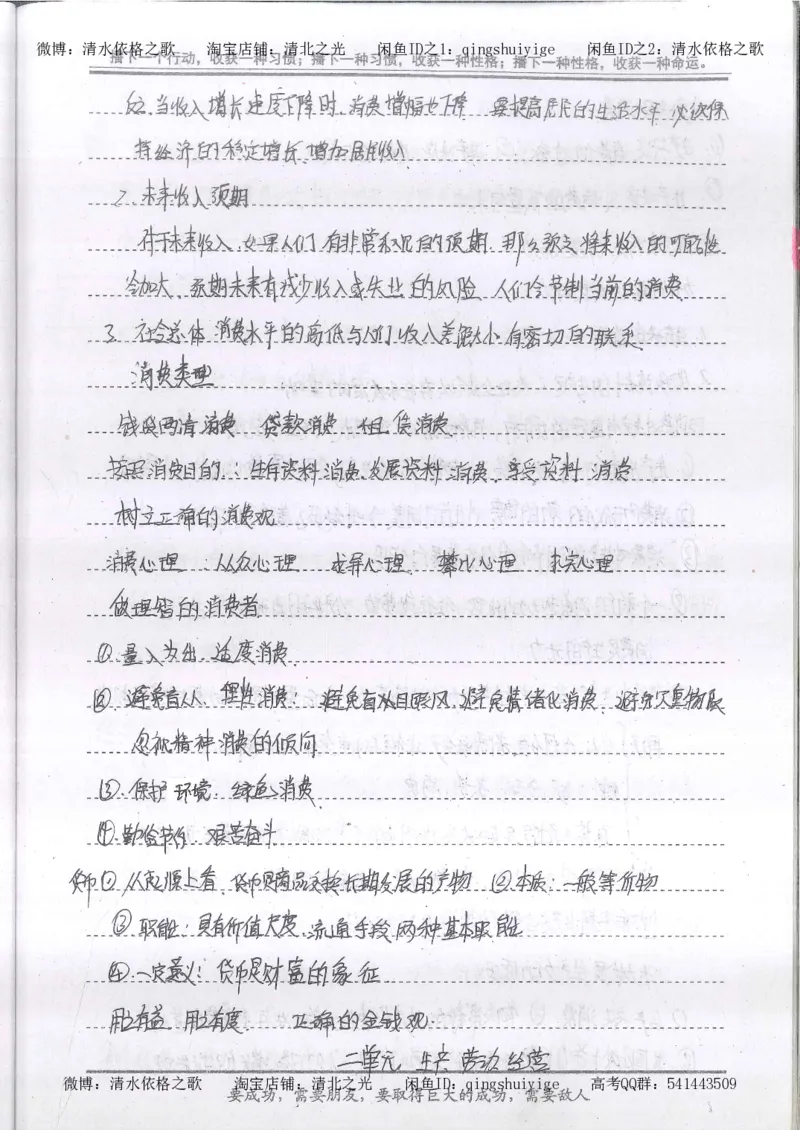 微博：清水依格之歌 淘宝店铺：清北之光 闲鱼ID之1：qingshuiyige 闲鱼ID之2：清水依格之歌
播下一个行动，收获一种习惯；播下一种习惯，收获一种性格；播下一种性格，收获一种命运。
当收入增长速度下降时，消费增幅也下降 要提高居民的生活水平，必须保
持经济的稳定增长，增加居民收入
2、未来收入预期
对于未来收入，如果人们有非常乐观的预期，那么预支将来收入的可能性
会加大，预期未来有减少收入或失业的风险，人们会节制当前的消费
3、社会总体消费水平的高低与人们收入差距大小有密切的联系
消费类型
钱货两清消费 贷款消费 租赁消费
按照消费目的：生存资料消费、发展资料消费、享受资料消费
树立正确的消费观
消费心理：从众心理 求异心理 攀比心理 求实心理
做理智的消费者
①量入为出，适度消费
②避免盲从，理性消费：避免盲目跟风、避免情绪化消费、避免只重物质
忽视精神消费的倾向
③保护环境，绿色消费
④勤俭节约，艰苦奋斗
货币①从起源上看，货币是商品交换长期发展的产物 ②本质：一般等价物
③职能：具有价值尺度、流通手段两种基本职能
④一定意义：货币是财富的象征
用之有益，用之有度 正确的金钱观
二单元 生产 劳动 经营
微博：清水依格之歌 淘宝店铺：清北之光 闲鱼ID：qingshuiyige 高考QQ群：541443509
要成功，需要朋友，要取得巨大的成功，需要敌人